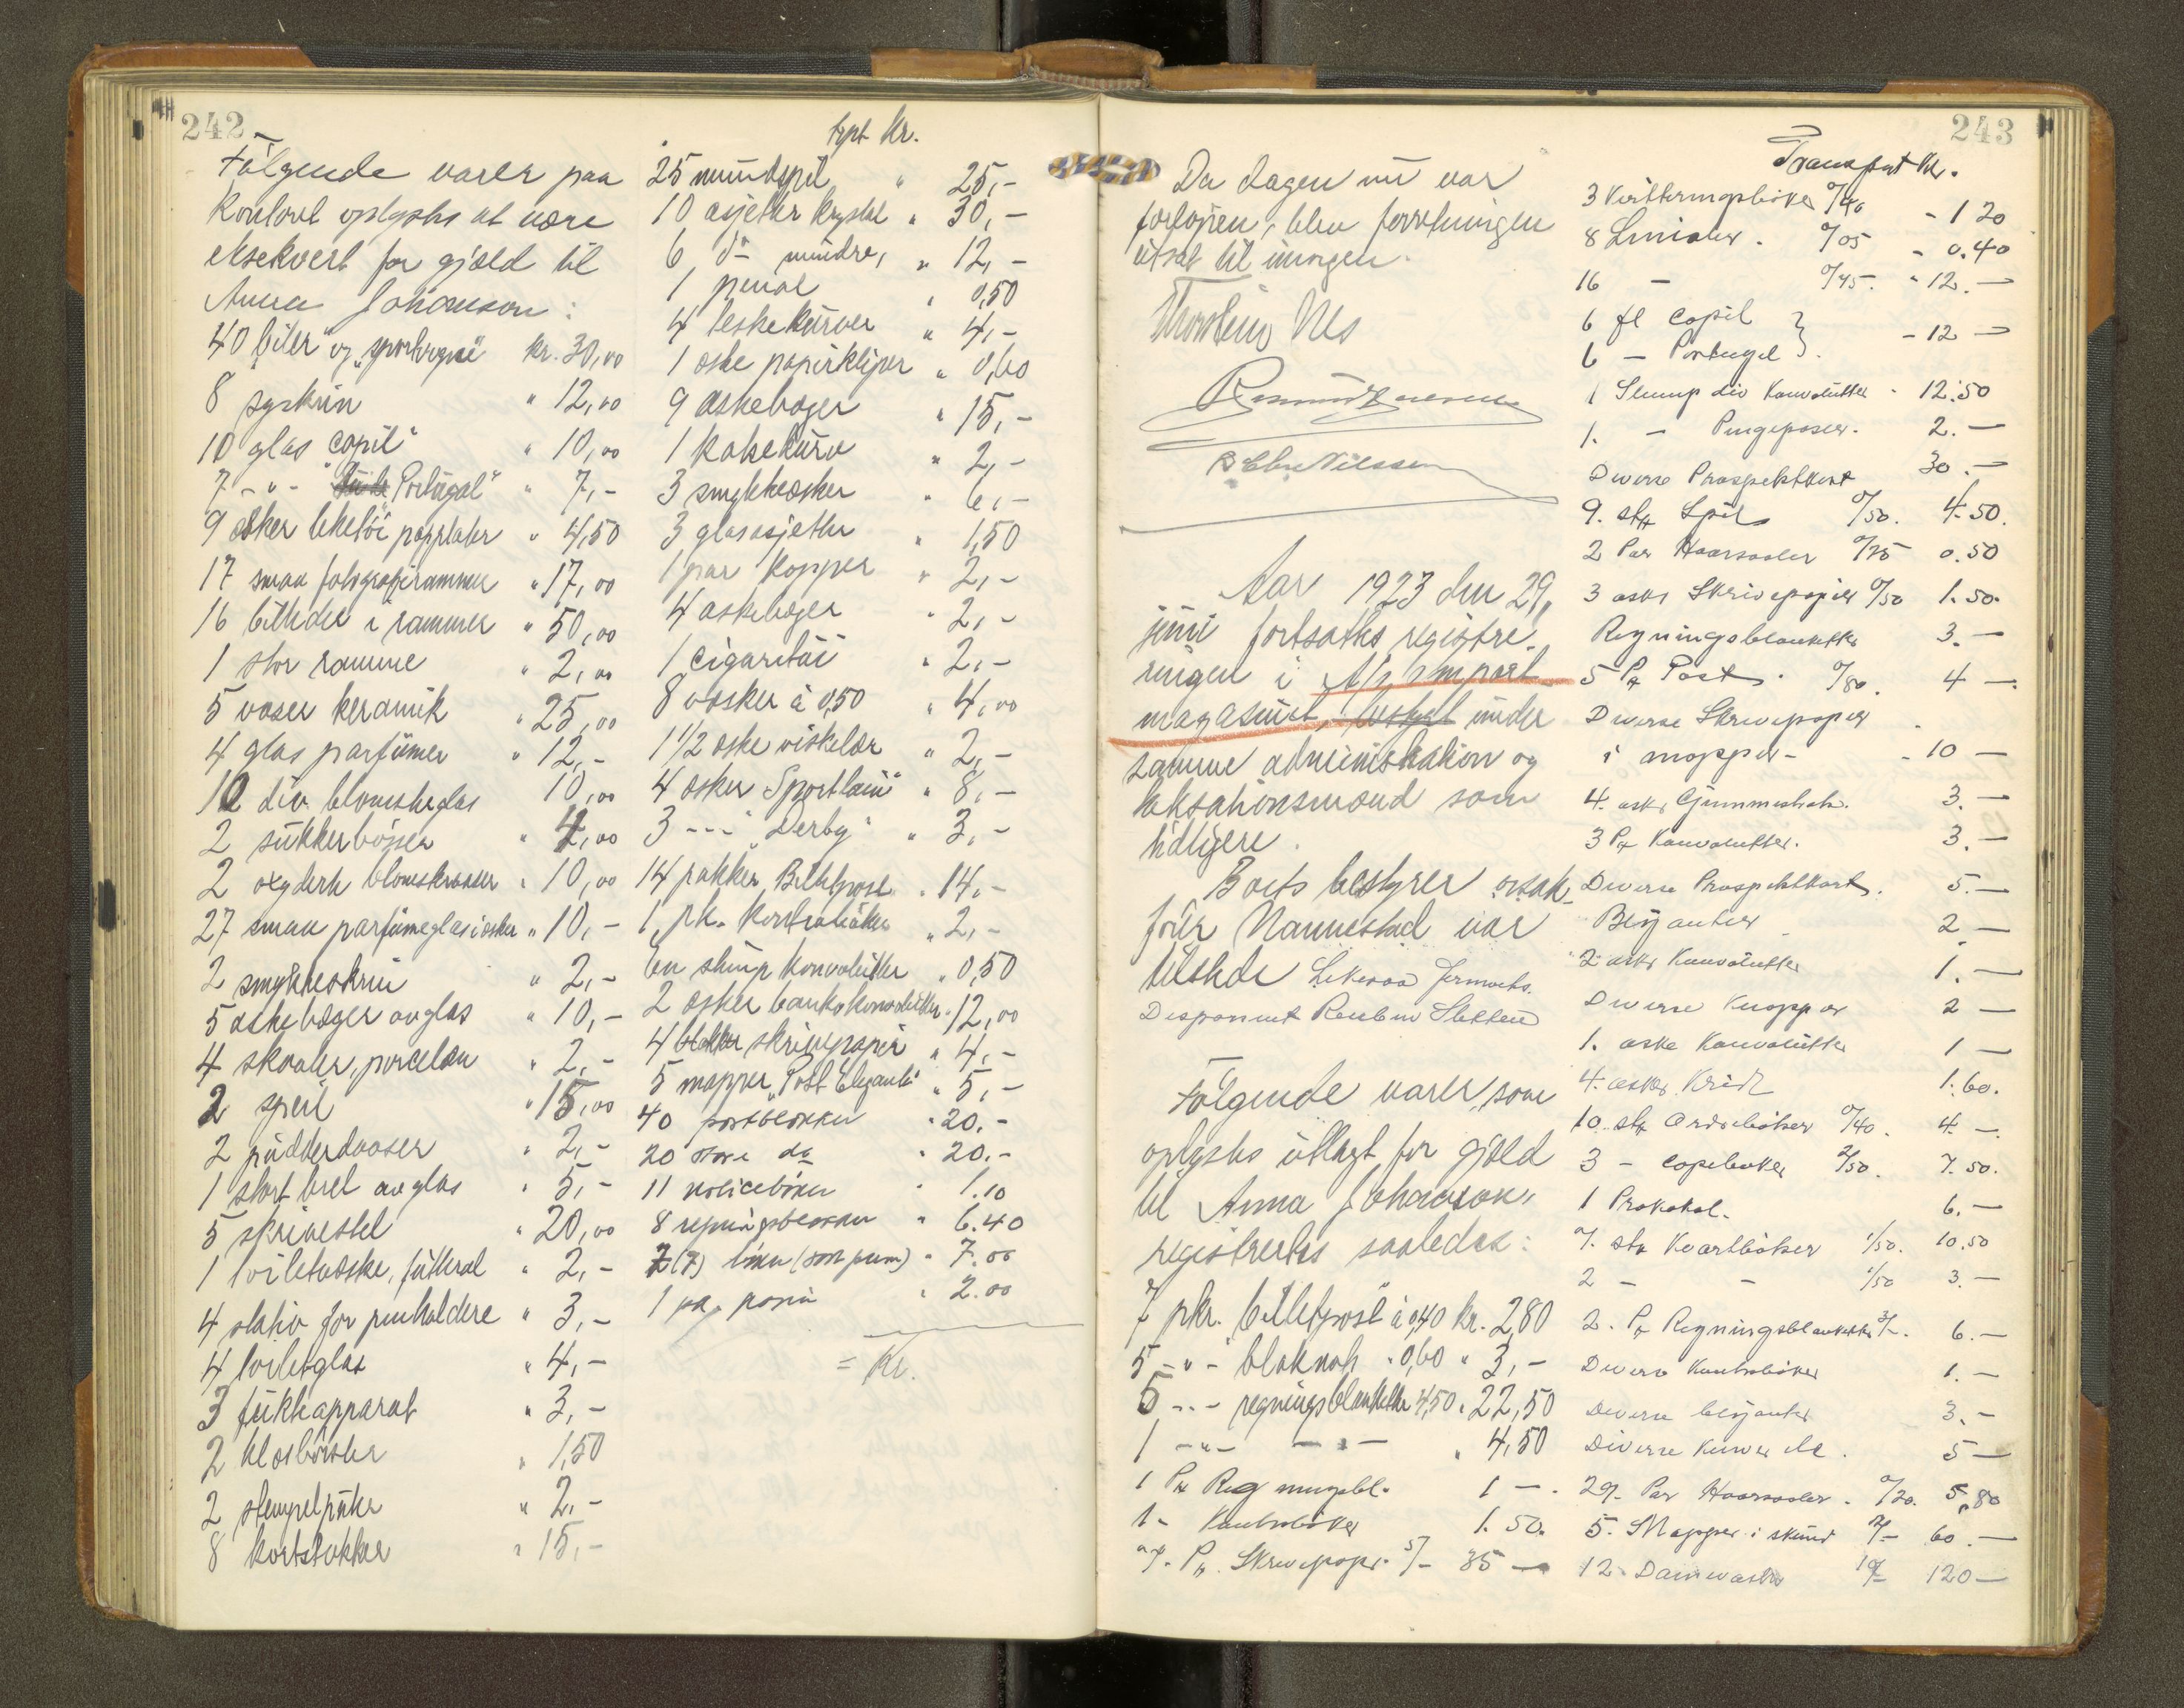 242
Følgende varer paa
kontoret oplystes at være
eksekvert for gjæld til
Anna Johanson:
40 biler og "sportvogne" kr. 30,00
8 syskrin " 12,00
10 glas "Capil" " 10,00
7 -"- "Portugal" " 7,-
9 æsker leketøi papplater " 4,50
17 smaa fotografirammer " 17,00
16 billeder i rammer " 50,00
1 stor ramme " 2,00
5 vaser keramik " 25,00
4 glas parfümer " 12,-
10 div. blomsterglas 10,00
2 sukkerbøsser " 4,00
2 oxyderte blomstervaser " 10,00
27 smaa parfümeglas i æsker " 10,-
2 smykkeskrin " 2,-
5 askebæger av glas " 10,-
4 skaaler, porcelæn " 2,-
2 speil " 15,00
2 pudderdaaser " 2,-
1 stort bret av glas " 5,-
5 skrivestel " 20,00
1 toiletvæske, futteral " 2,-
4 stativ for penholdere " 3,-
4 toiletglas " 4,-
3 fukteapparat " 3,-
2 klæsbørster " 1,50
2 stempelpute " 2,-
8 kortstokker " 15,-
trpt kr.
25 mundspil " 25,-
10 asjetter krystal " 30,-
6 do mindre, " 12,-
1 penal " 0,50
4 leskekurver " 4,-
1 æske papirklyper " 0,60
9 askebæger " 15,-
1 kakekurv " 2,-
3 smykkeæsker " 6,-
3 glasasjetter " 1,50
1 par kopper " 2,-
4 askebæger " 2,-
1 cigaretui " 2,-
8 væsker à 0,50 " 4,00
1 1/2 æske viskelær " 2,-
4 æsker "Sportlain" " 8,-
3 --- "Derby" " 3,-
14 pakker Billetpost " 14,-
1 pk. kontrabøker " 2,-
En stump konvolutter " 0,50
2 æsker bankkonvolutter " 12,00
4 blokker skrivepapir " 4,-
5 mapper "Post Elegante" " 5,-
40 postblokker " 20.-
20 store do " 20.-
11 noticebøker " 1.10
8 regningsblokker " 6.40
7 (7) bøker (sort perm) " 7.00
1 pk. papir " 2.00
= Kr.
243
Da dagen nu var
forløpen, blev forretningen
utsat til imorgen.
Thorstein Nes
Aar 1923 den 29,
juni fortsattes registre-
ringen i A/s Import
magasinet, under
samme administration og
taksationsmænd som
tidligere.
Boets bestyrer o.r.sak-
fører Nannestad var
tilstede Likesaa
Disponent Reuben Sletten
Følgende varer, som
oplystes utlagt for gjæld
til Anna Johanson,
registrertes saaledes:
7 pkr. billetpost à 0,40 kr. 2,80
5 -"- bloknot " 0,60 " 3,-
5 --- regningsblanketter 4,50 " 22,50
1 -"- -"- " 4,50
1 Pk Regningsbl. 1 -.
1 - Kontrabøker 1.50.
7. Pk. Skrivepapir 5/- 35 -
Transport Kr.
3 Kvitteringsbøker 0/40 - 1 20
8 Linialer. 0/05 - 0.40
16 - 0/75. - 12.-
6 fl Capil }
6 - Portugal } - 12 -
1 Slump div Konvolutter - 12.50
1. - Pengeposer. 2.-
Diverse Prospektkort 30.-
9. stk Spil 0/50. 4.50.
2 Par Haarsaaler 0/25 0.50
3 æsker Skrivepapir 0/50 1.50.
Regningsblanketter 3.-
5 Pk Post. 0/80. 4 -.
Diverse Skrivepapir
i mapper - - 10 -
4. æsk. Gummistrik. 3.-
3 Pk Konvolutter. 3.-
Diverse Prospektkort. 5.-
Blyanter 2 -
2 æsker Konvolutter 1.-
Diverse Knapper 2 -
1. æske Konvolutter 1 -
4. æsker Krit 1.60.
10. stk Ordrebøker 0/40. 4 -.
3 - Copibøker 2/50. 7.50.
1 Protokol. 6.-
7. stk Kvartbøker 1/50. 10.50
2 - - 1/50 3.-
2. Pk Regningsblanketter 3/-. 6.-
Diverse Kontrabøker 1.-
Diverse blyanter 3.-
Diverse Kurver etc. 5 -
29. Par Haarsaaler. 0/20. 5.80
5. Mapper i skind 12/- 60.-
12. Damevæsker 10/- 120 -